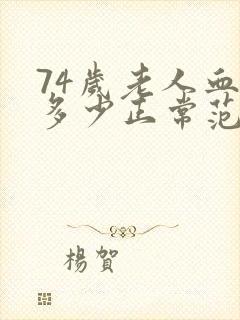 74歲老人血
多少正常范
楊賀